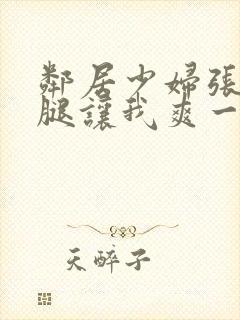 鄰居少婦張
腿讓我爽一
天醉子